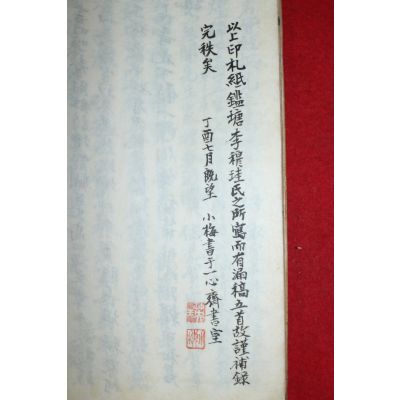 以上印札紙鑑塘李穆珪氏之所寫而有漏稿五首故謹補錄
完秩矣
丁酉七月既望 小梅書于一心齋書室